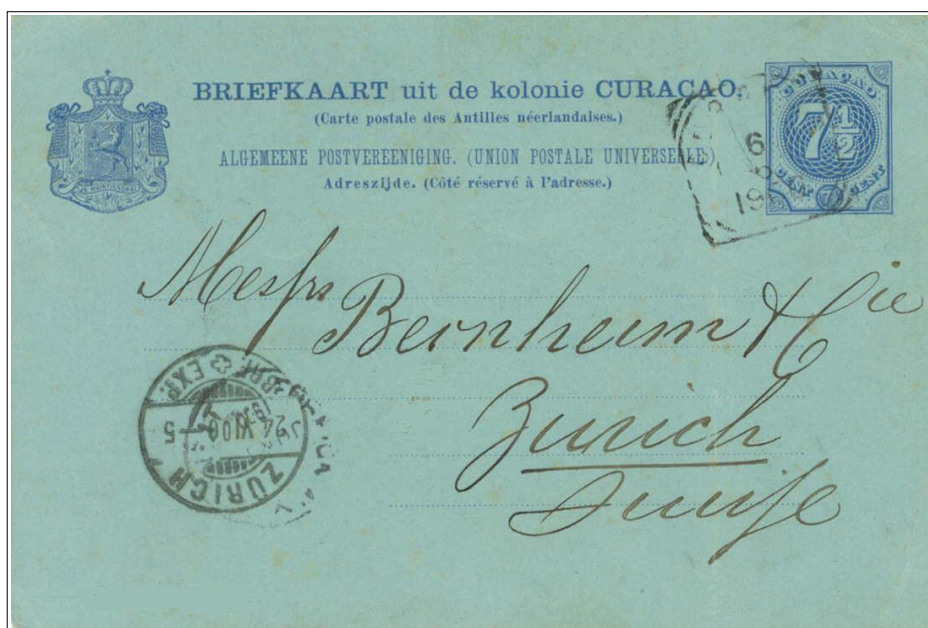 BRIEFKAART uit de kolonie CURAÇAO.
(Carte postale des Antilles néerlandaises.)
ALGEMEENE POSTVEREENIGING. (UNION POSTALE UNIVERSELLE.)
Adreszijde. (Côté réservé à l'adresse.)
7½
CENT CENT
6
19
Messrs Bernheim & Cie
Zurich
Suisse
BRF. EXP.
24 XI 00 5
ZÜRICH